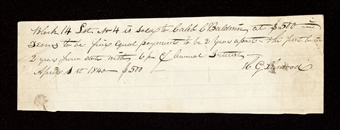 Block 14 Lot No 4 is sold to Caleb C Baldwin at $500 in
Terms to be five equal payments to be 2 years apart - the first to be
2 years from date with 6 pr ct annual Interest
April 1st 1840 - $500